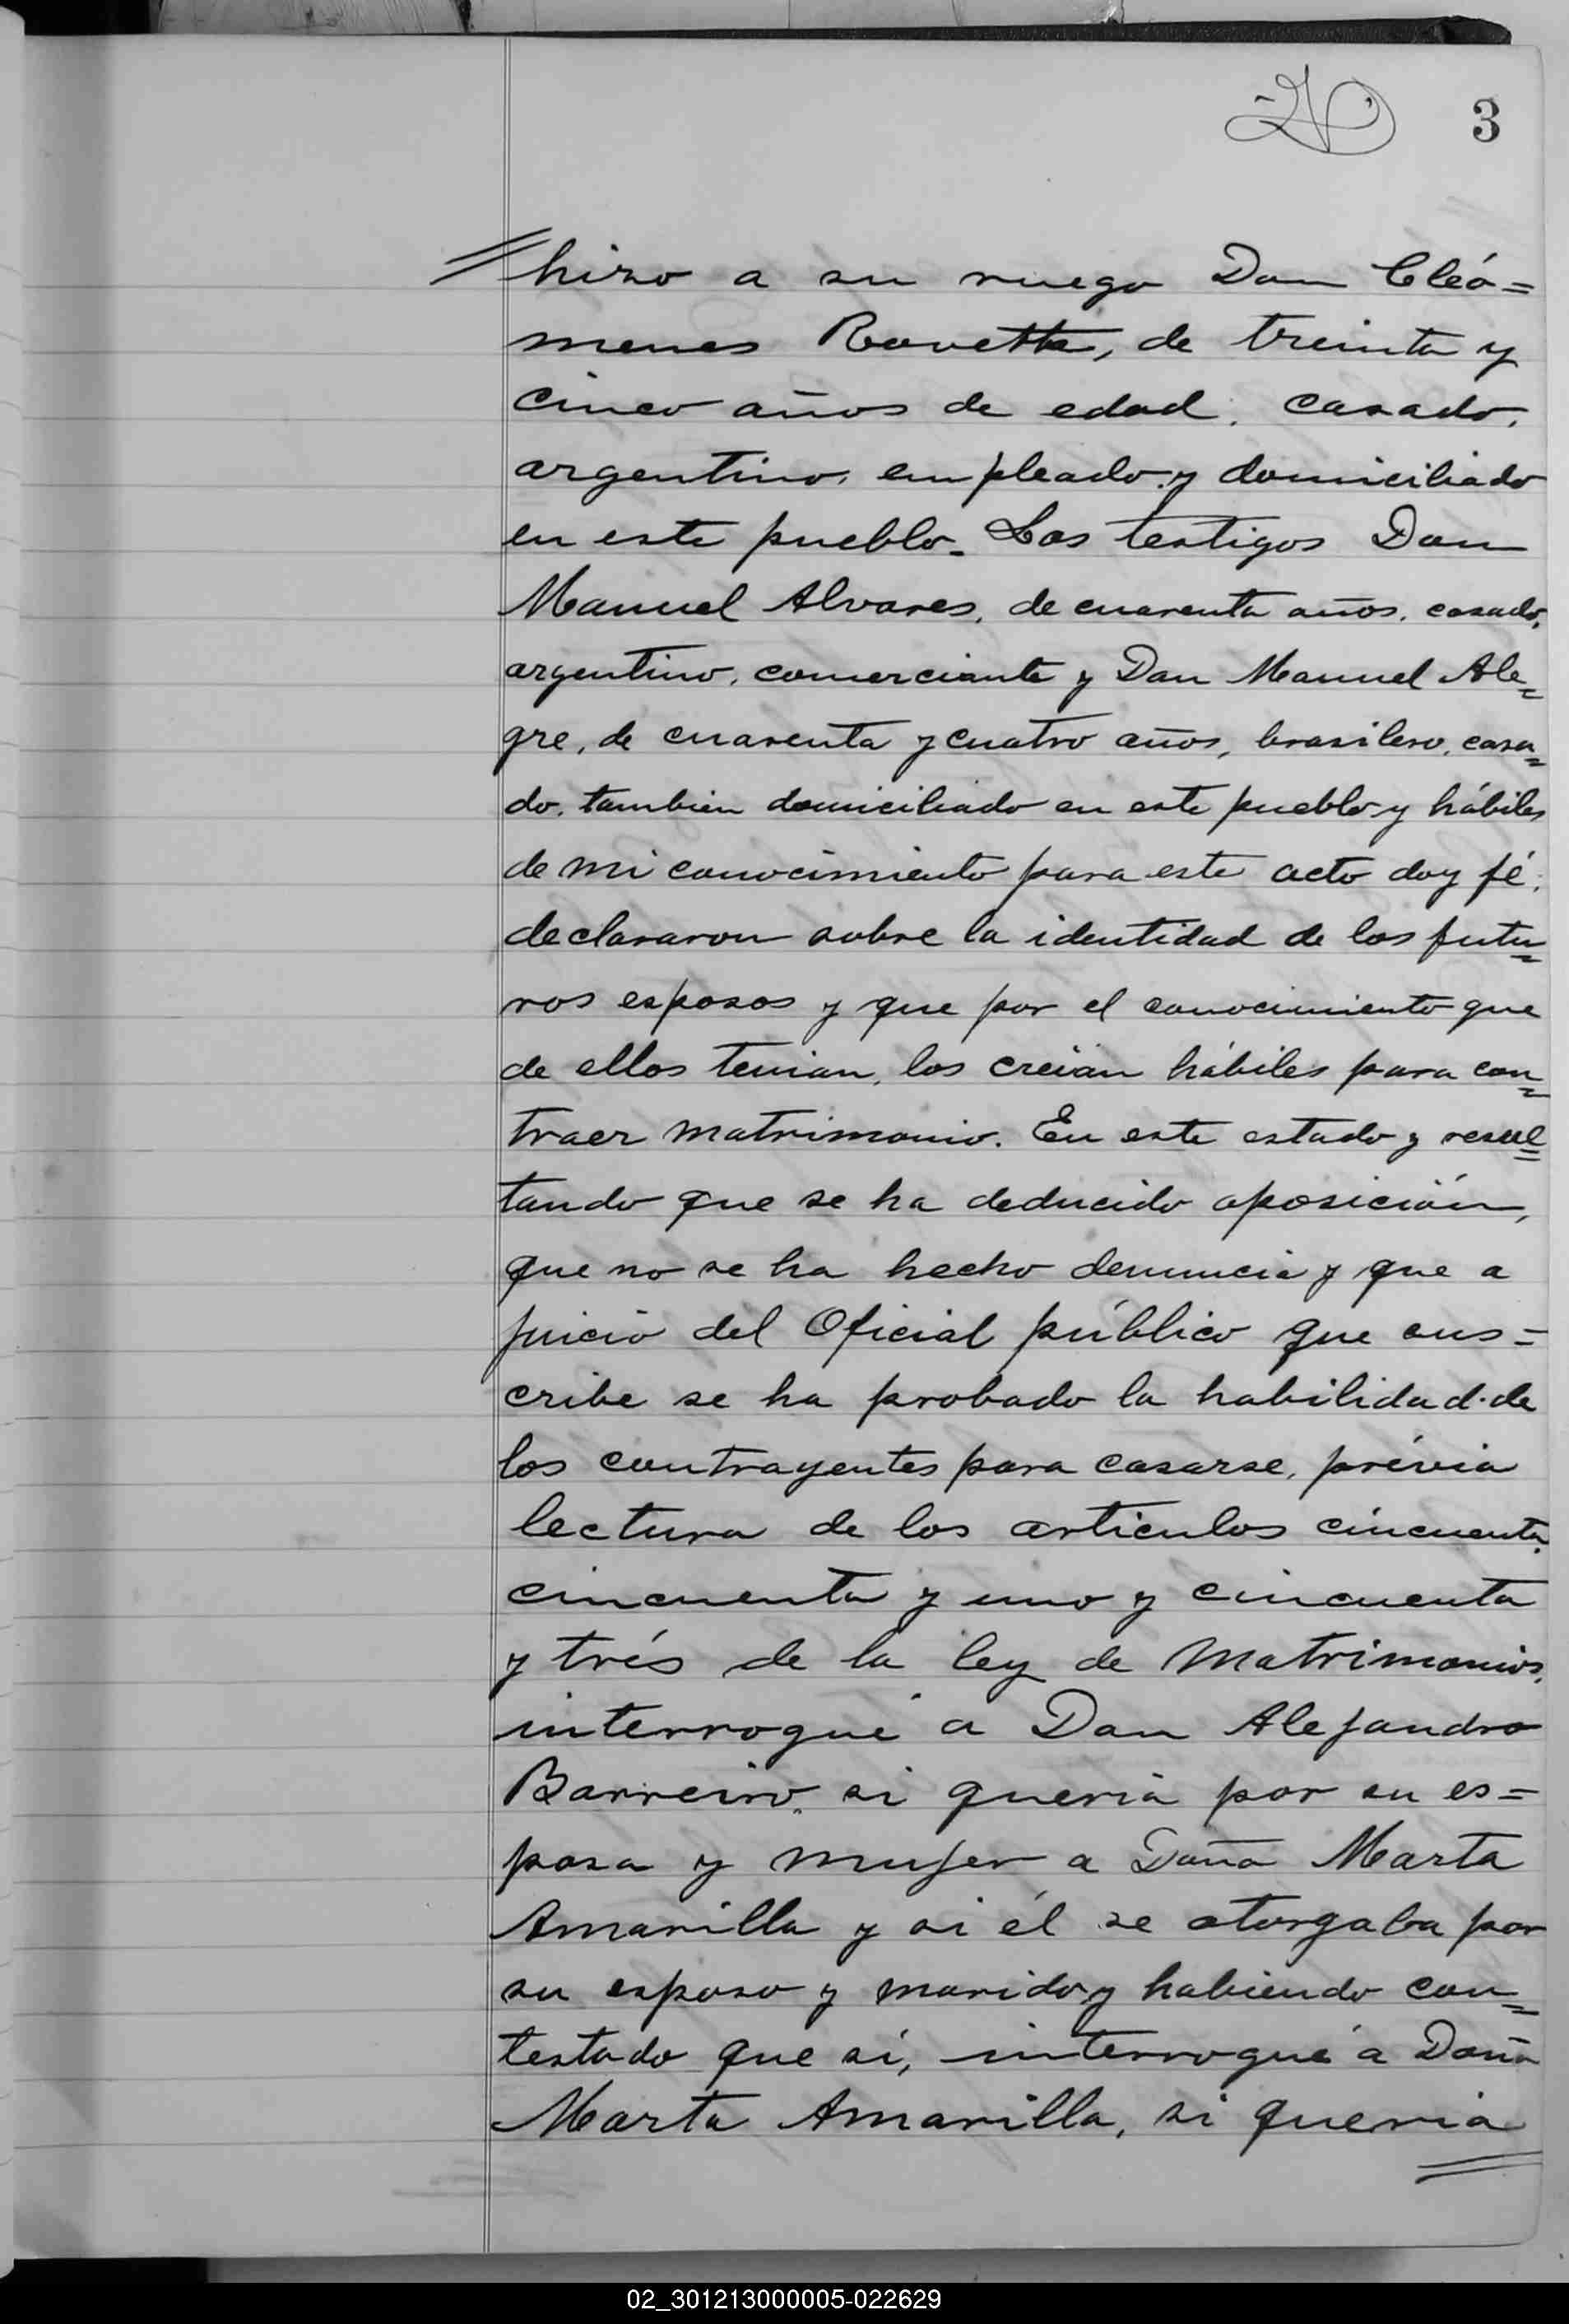 3
hizo a su ruego Don Cleó=
menes Rovetta, de treinta y
cinco años de edad, casado,
argentino, empleado y domiciliado
en este pueblo. Los testigos Don
Manuel Alvares, de cuarenta años, casado,
argentino, comerciante y Don Manuel Ale=
gre, de cuarenta y cuatro años, brasilero, casa=
do, tambien domiciliado en este pueblo y hábiles
de mi conocimiento para este acto doy fé,
declararon sobre la identidad de los futu=
ros esposos y que por el conocimiento que
de ellos tenian, los creian hábiles para con=
traer matrimonio. En este estado y resul=
tando que se ha deducido oposición,
que no se ha hecho denuncia y que a
juicio del Oficial público que sus=
cribe se ha probado la habilidad de
los contrayentes para casarse, prévia
lectura de los articulos cincuenta,
cincuenta y uno y cincuenta
y trés de la ley de Matrimonios,
interrogué a Don Alejandro
Barreiro, si queria por su es=
posa y mujer a Doña Marta
Amarilla y si él se otorgaba por
su esposo y marido y habiendo con=
testado que sí, interrogué a Doña
Marta Amarilla, si queria
02_301213000005-022629